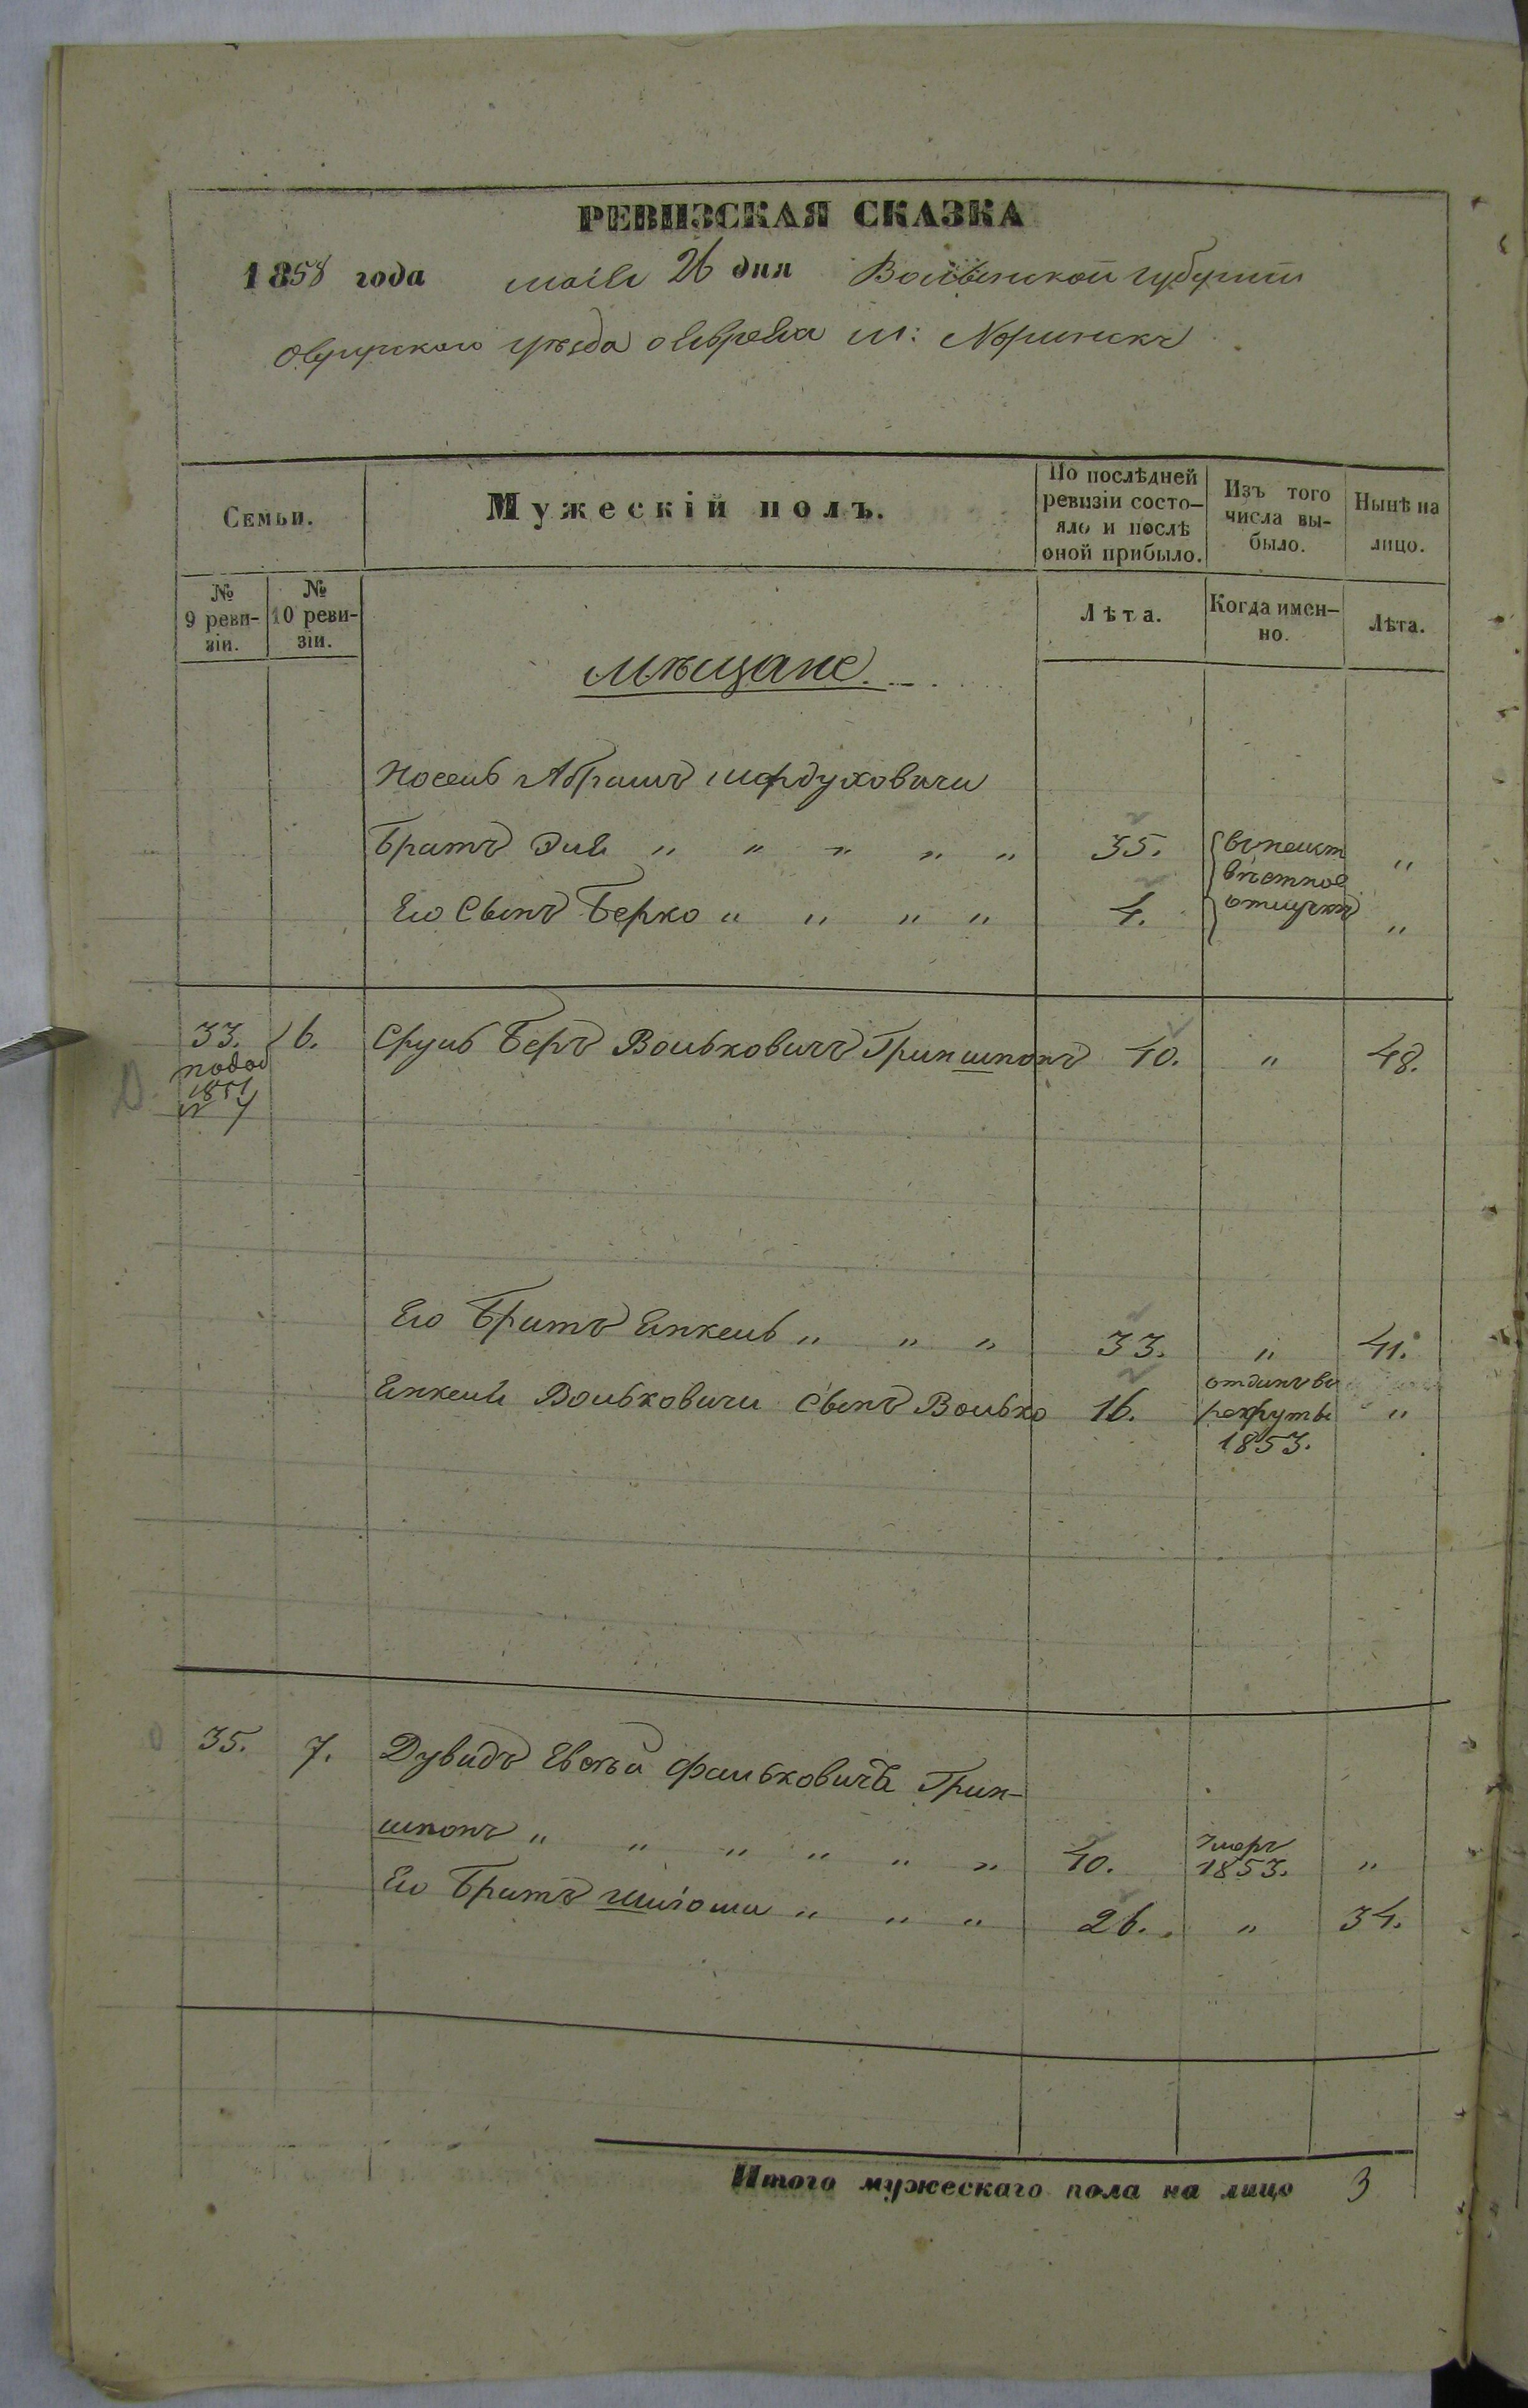 РЕВИЗСКАЯ СКАЗКА
1858 года маія 26 дня Волынской губерніи
Овручского уѣзда о евреяхъ м: Норинскъ
Семьи.
Мужескій полъ.
По послѣдней ревизіи состо-
яло и послѣ оной прибыло.
Изъ того числа вы-
было.
Нынѣ на лицо.
№ 9 реви-
зіи.
№ 10 реви-
зіи.
Лѣта.
Когда имен-
но.
Лѣта.
Мѣщане
Носель Абрамъ Мордуховичи
Братъ Эли " " " " " 35. "
Его Сынъ Берко " " " " 4. отлучкѣ "
33. 6. Сруль Беръ Вольковичъ Гриншпонъ 40. " 48.
1851
№ 7
Его Братъ Янкель " " " 33. " 41.
Янкеля Вольковича Сынъ Волько 16. отданъ въ "
рекруты
1853.
35. 7. Дувидъ Фальковичъ Грин-
шпонъ " " " " " " 40. умеръ 1853. "
Его Братъ Шліома " " " 26. " 34.
Итого мужескаго пола на лицо 3